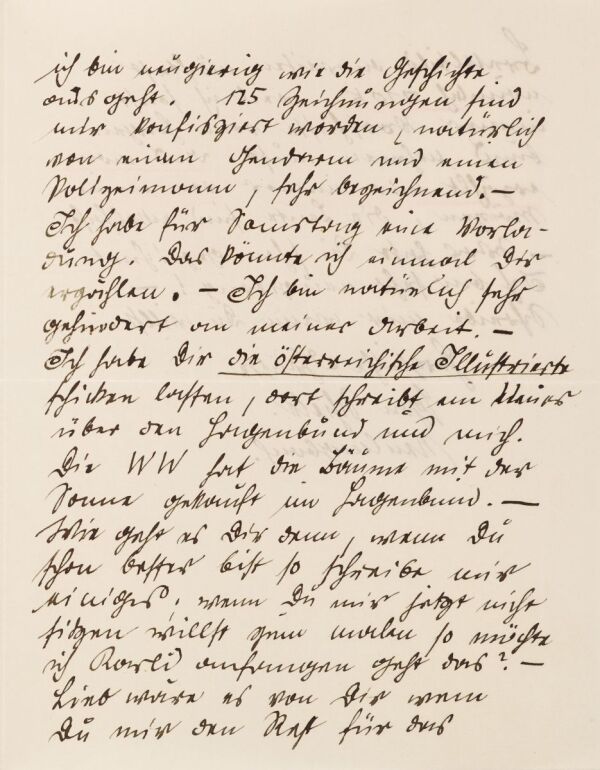 ich bin neugierig wie die Geschichte
ausgeht. 125 Zeichnungen sind
mir konfisziert worden, natürlich
von einem Gendarm und einem
Polizeimann, sehr bezeichnend. —
Ich habe für Samstag eine Vorla-
dung. Das könnte ich einmal Dir
erzählen. — Ich bin natürlich sehr
gehindert an meiner Arbeit. —
Ich habe Dir die österreichische Illustrierte
schicken lassen, dort schreibt ein
über den Hagenbund und mich.
Die WW hat die Bäume mit der
Sonne gekauft im Hagenbund. —
Wie geht es Dir denn, wenn Du
schon besser bist so schreibe mir
einiges, wenn Du mir jetzt nicht
sitzen willst zum malen so möchte
ich Karli anfangen geht das? —
Lieb wäre es von Dir wenn
Du mir den Rest für das